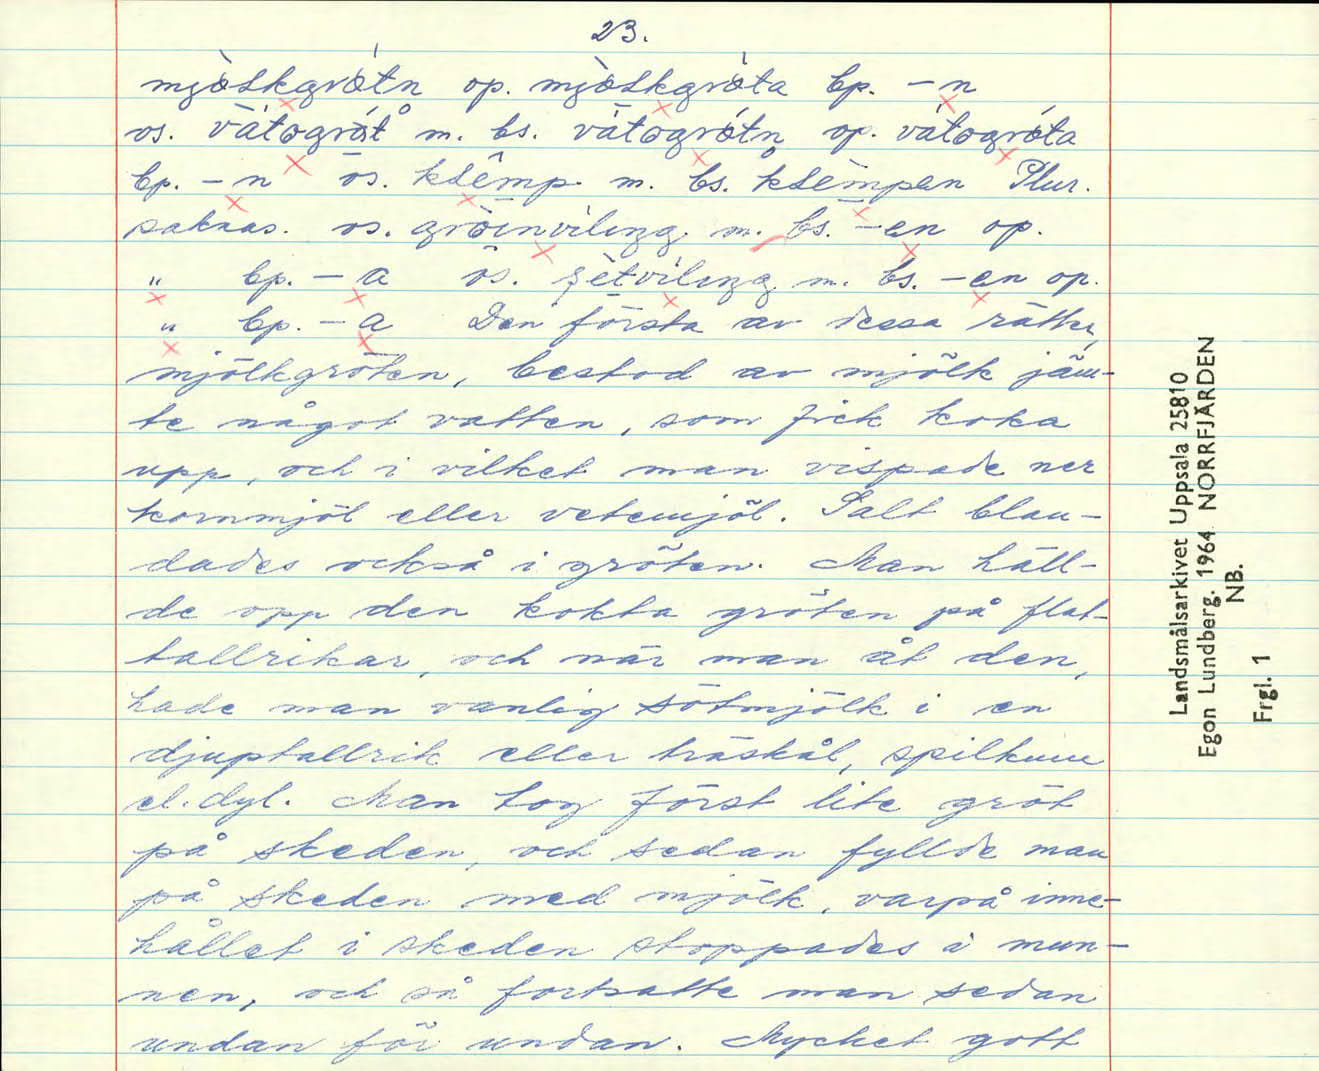 23.
mjö̀lkgrötn op. mjö̀lkgröta bp. -n
os. våtogröt m. bs. våtogrötn op. våtogröta
bp. -n os. klèmp m. bs. klèmpen Plur.
saknas. os. m. bs. -en op.
" bp. -a os. m. bs. -en op.
" bp. -a Den första av dessa rätter,
mjölkgröten, bestod av mjölk jäm-
te något vatten, som fick koka
upp, och i vilket man vispade ner
kornmjöl eller vetemjöl. Salt blan-
dades också i gröten. Man häll-
de opp den kokta gröten på flat-
tallrikar, och när man åt den,
hade man vanlig sötmjölk i en
djuptallrik eller träskål, spilkum
el. dyl. Man tog först lite gröt
på skeden, och sedan fyllde man
på skeden med mjölk, varpå inne-
hållet i skeden stoppades i mun-
nen, och så fortsatte man sedan
undan för undan. Mycket gott
Landsmålsarkivet Uppsala 25810
Egon Lundberg. 1964 NORRFJÄRDEN
NB.
Frgl. 1